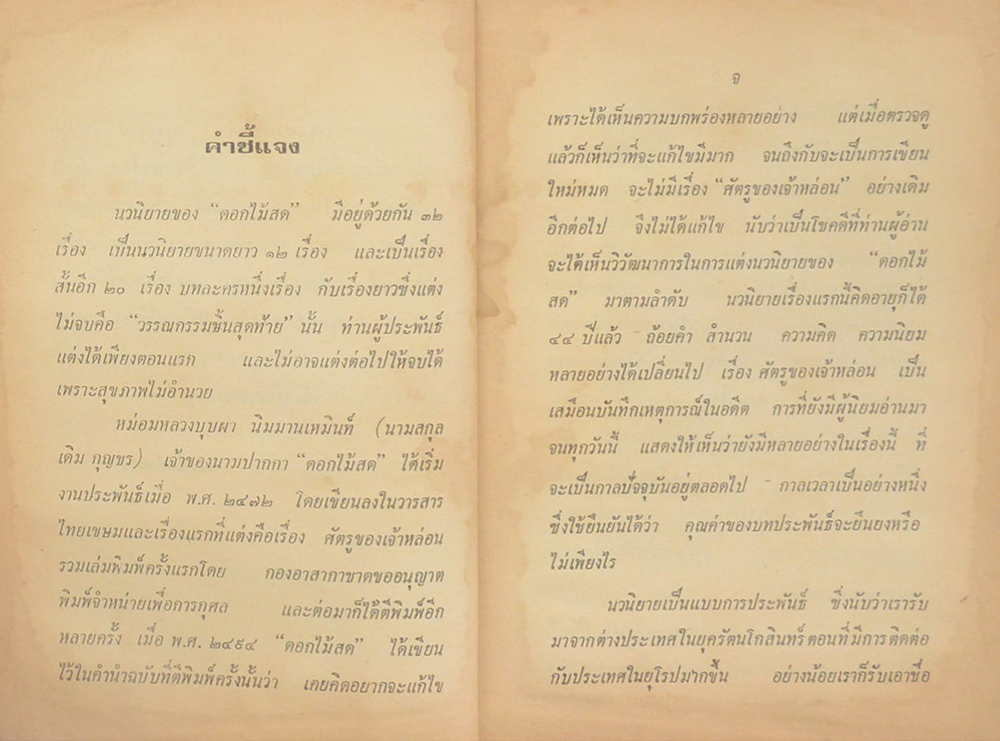 คำชี้แจง
นวนิยายของ “ดอกไม้สด” มีอยู่ด้วยกัน ๓๒
เรื่อง เป็นนวนิยายขนาดยาว ๑๒ เรื่อง และเป็นเรื่อง
สั้นอีก ๒๐ เรื่อง บทละครหนึ่งเรื่อง กับเรื่องยาวซึ่งแต่ง
ไม่จบคือ “วรรณกรรมชิ้นสุดท้าย” นั้น ท่านผู้ประพันธ์
แต่งได้เพียงตอนแรก และไม่อาจแต่งต่อไปให้จบได้
เพราะสุขภาพไม่อำนวย
หม่อมหลวงบุบผา นิมมานเหมินท์ (นามสกุล
เดิม กุญชร) เจ้าของนามปากกา “ดอกไม้สด” ได้เริ่ม
งานประพันธ์เมื่อ พ.ศ. ๒๔๗๒ โดยเขียนลงในวารสาร
ไทยเขษมและเรื่องแรกที่แต่งคือเรื่อง ศัตรูของเจ้าหล่อน
รวมเล่มพิมพ์ครั้งแรกโดย กองอาสากาชาดขออนุญาต
พิมพ์จำหน่ายเพื่อการกุศล และต่อมาก็ได้ตีพิมพ์อีก
หลายครั้ง เมื่อ พ.ศ. ๒๔๙๔ “ดอกไม้สด” ได้เขียน
ไว้ในคำนำฉบับที่ตีพิมพ์ครั้งนั้นว่า เคยคิดอยากจะแก้ไข
จ
เพราะได้เห็นความบกพร่องหลายอย่าง แต่เมื่อตรวจดู
แล้วก็เห็นว่าที่จะแก้ไขมีมาก จนถึงกับจะเป็นการเขียน
ใหม่หมด จะไม่มีเรื่อง “ศัตรูของเจ้าหล่อน” อย่างเดิม
อีกต่อไป จึงไม่ได้แก้ไข นับว่าเป็นโชคดีที่ท่านผู้อ่าน
จะได้เห็นวิวัฒนาการในการแต่งนวนิยายของ “ดอกไม้
สด” มาตามลำดับ นวนิยายเรื่องแรกนี้คิดอายุก็ได้
๔๔ ปีแล้ว – ถ้อยคำ สำนวน ความคิด ความนิยม
หลายอย่างได้เปลี่ยนไป เรื่อง ศัตรูของเจ้าหล่อน เป็น
เสมือนบันทึกเหตุการณ์ในอดีต การที่ยังมีผู้นิยมอ่านมา
จนทุกวันนี้ แสดงให้เห็นว่ายังมีหลายอย่างในเรื่องนี้ ที่
จะเป็นกาลปัจจุบันอยู่ตลอดไป – กาลเวลาเป็นอย่างหนึ่ง
ซึ่งใช้ยืนยันได้ว่า คุณค่าของบทประพันธ์จะยืนยงหรือ
ไม่เพียงไร
นวนิยายเป็นแบบการประพันธ์ ซึ่งนับว่าเรารับ
มาจากต่างประเทศในยุครัตนโกสินทร์ตอนที่มีการติดต่อ
กับประเทศในยุโรปมากขึ้น อย่างน้อยเราก็รับเอาชื่อ